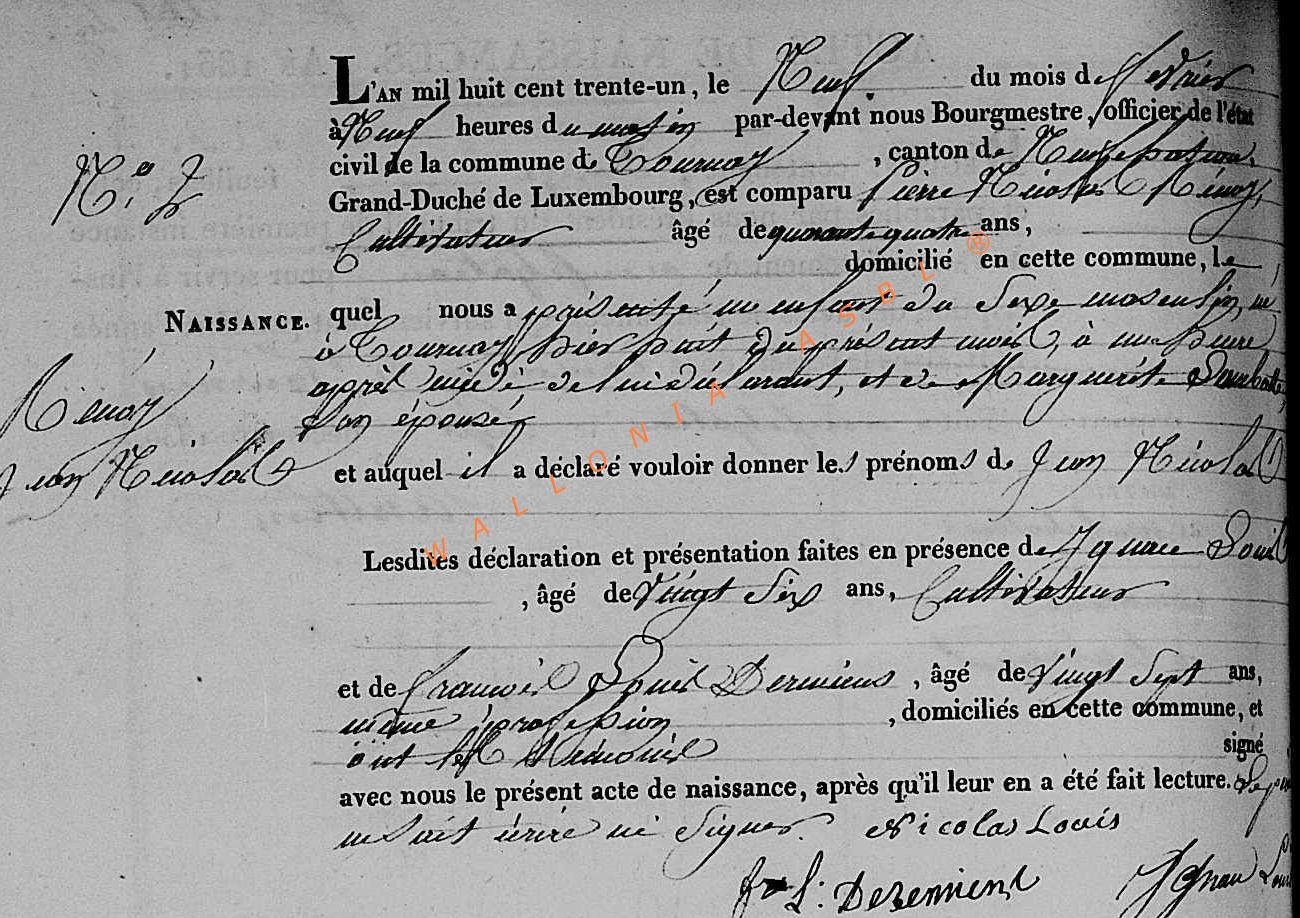 L'AN mil huit cent trente-un, le Neuf du mois de fevrier
à Neuf heures du matin par-devant nous Bourgmestre, officier de l'état
civil de la commune de Tournay, canton de
N.º 7
Grand-Duché de Luxembourg, est comparu Pierre Nicolas Henoy,
Cultivateur âgé de quarante quatre ans,
domicilié en cette commune, le
quel nous a présenté un enfant du Sexe masculin, né
NAISSANCE.
à Tournay, hier huit du présent mois, à une heure
après midi de lui déclarant, et de Marguerite
Son épouse,
Henoy
Jean Nicolas
et auquel il a déclaré vouloir donner les prénoms de Jean Nicolas
Lesdites déclaration et présentation faites en présence de Ignace Louis
, âgé de Vingt Six ans, Cultivateur
et de francois Louis Deremiens, âgé de Vingt Sept ans,
même profession, domiciliés en cette commune, et
ont les témoins signé
avec nous le présent acte de naissance, après qu'il leur en a été fait lecture. Le
ne Sait écrire ni Signer. Nicolas Louis
L: Deremiens Ignace
WALLONIA ASBL ®